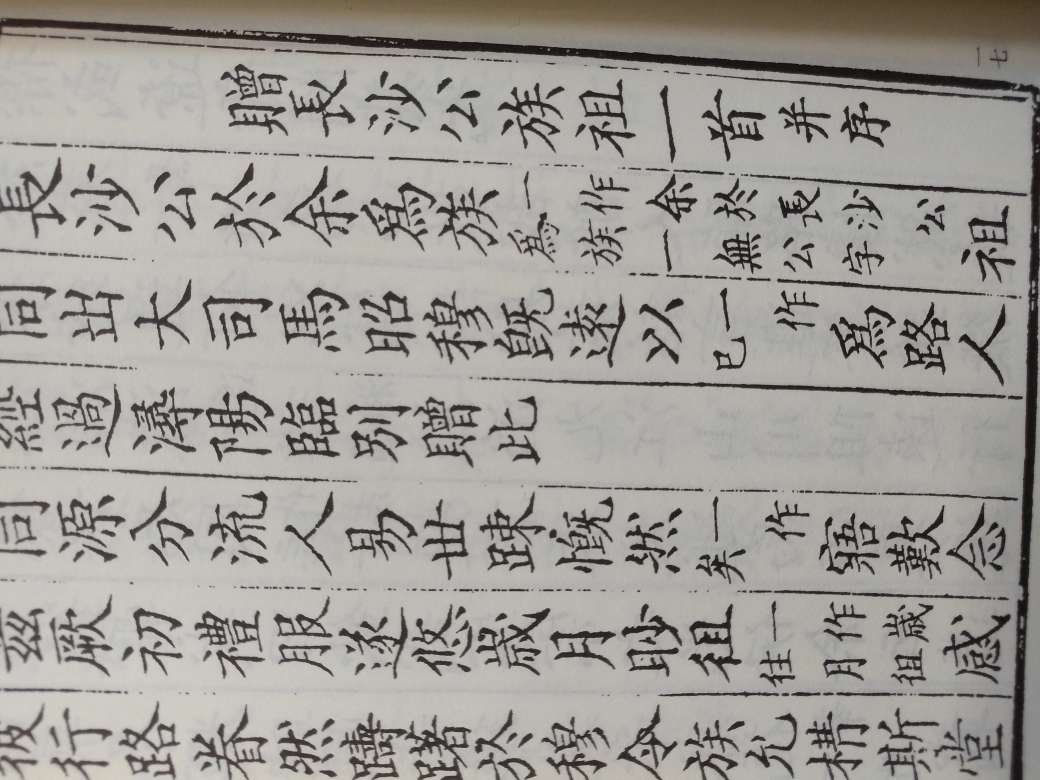 一七
贈長沙公族祖一首并序
長沙公於余爲族一作余於長沙公爲族一無公字祖
同出大司馬昭穆旣遠以一作已爲路人
經過潯陽臨别贈此
同源分流人易世踈慨然一作矣寤歎念
茲厥初禮服遂悠歲月眇徂一作歲往月徂感
彼行路眷然躊躇於穆令族允構斯堂